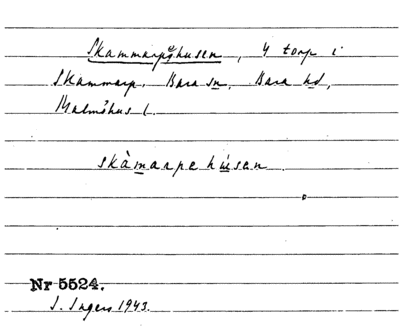 Skammarpahusen, 4 torp i
Skammarp, Bara sn, Bara hd,
Malmöhus l.
skàmarpehúsen.
Nr 5524.
I. Ingers 1943.